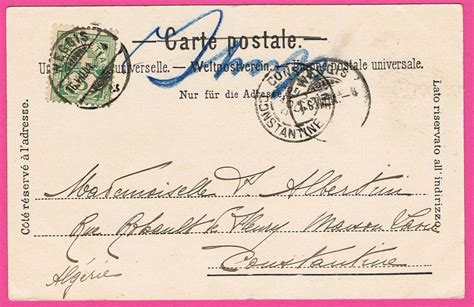 Carte postale.
Weltpostverein. postale universale.
Nur für die Adresse.
CONSTANTINE
Côté réservé à l'adresse.
Lato riservato all' indirizzo.
Mademoiselle d'Albertini
Rue Rohault de Fleury Maison
Constantine
Algérie